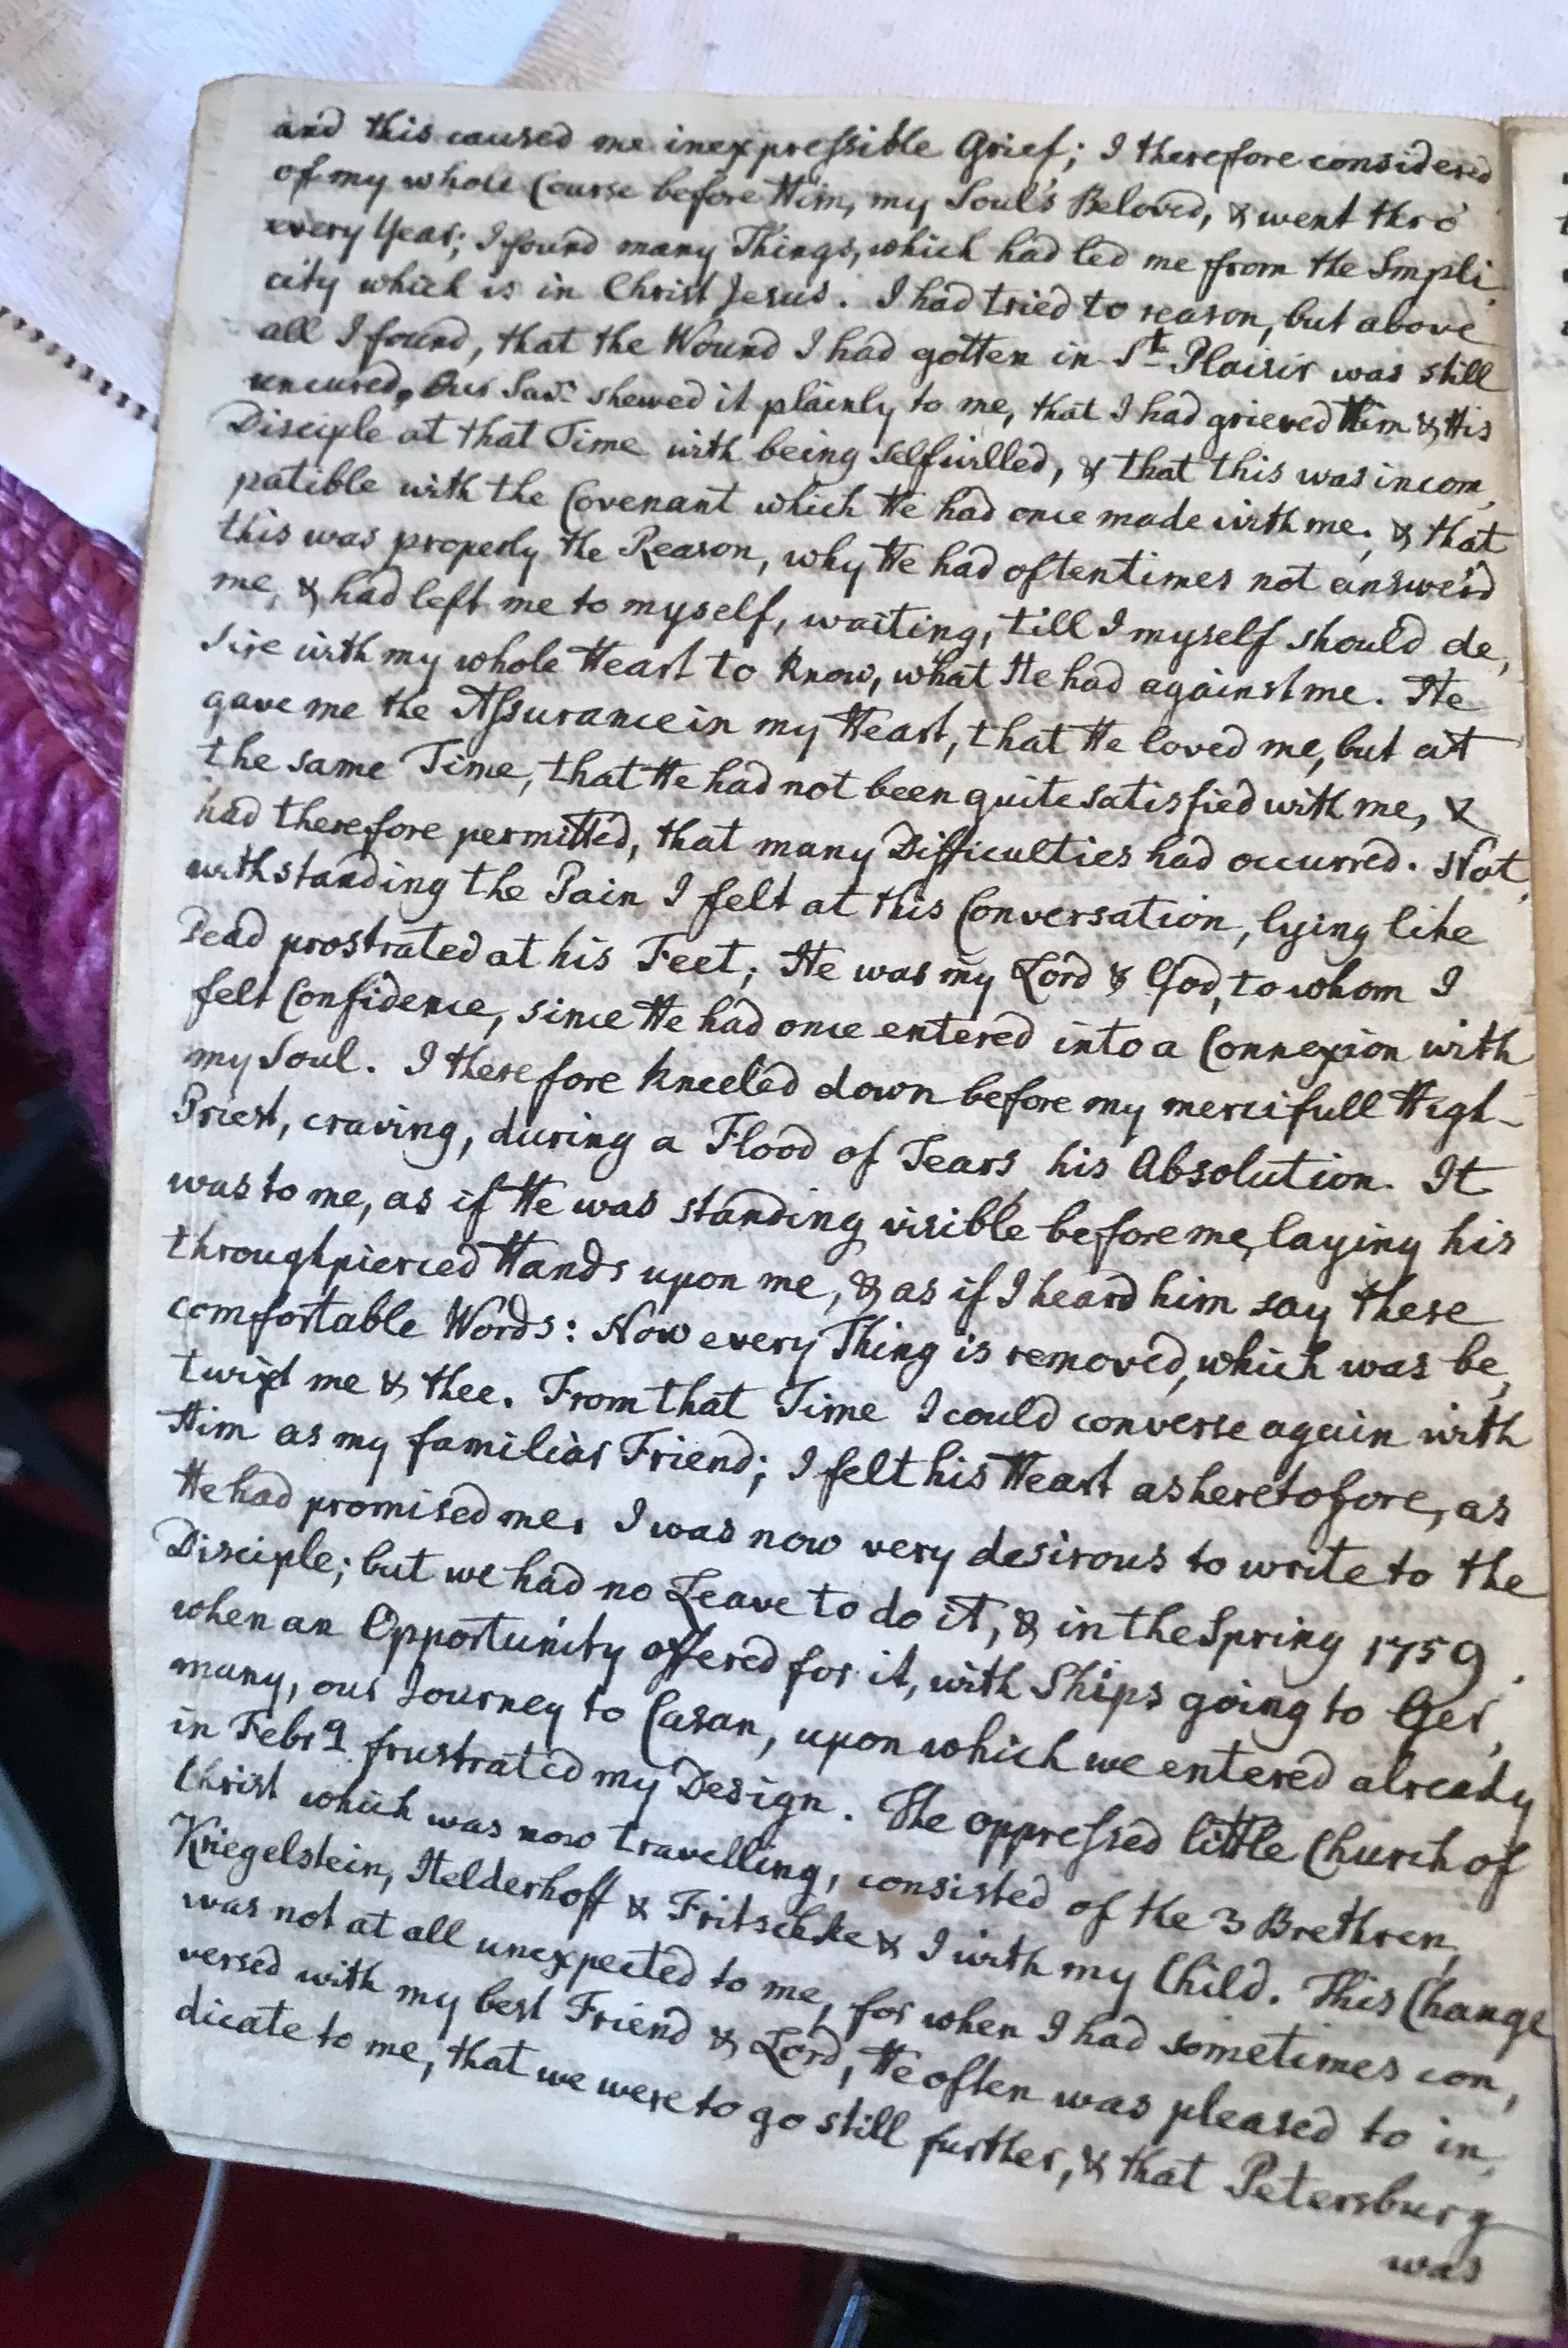 and this caused me inexpressible Grief; I therefore considered
of my whole Course before Him, my Soul's Beloved, & went thro'
every Year; I found many Things, which had led me from the Smpli,
city which is in Christ Jesus. I had tried to reason, but above
all I found, that the Wound I had gotten in St Plaisir was still
uncured, Our Savr shewed it plainly to me, that I had grieved Him & His
Disciple at that Time with being selfwilled, & that this was incom,
patible with the Covenant which He had once made with me; & that
this was properly the Reason, why He had oftentimes not answer'd
me, & had left me to myself, waiting, till I myself should de,
sire with my whole Heart to know, what He had against me. He
gave me the Assurance in my Heart, that He loved me, but at
the same Time, that He had not been quite satisfied with me, &
had therefore permitted, that many Difficulties had occurred. Not,
withstanding the Pain I felt at this Conversation, lying like
Dead prostrated at his Feet; He was my Lord & God, to whom I
felt Confidence, since He had once entered into a Connexion with
my Soul. I therefore kneeled down before my mercifull High-
Priest, craving, during a Flood of Tears, his Absolution. It
was to me, as if He was standing visible before me, laying his
throughpierced Hands upon me, & as if I heard him say these
comfortable Words: Now every Thing is removed, which was be,
twixt me & thee. From that Time I could converse again with
Him as my familiar Friend; I felt his Heart as heretofore, as
He had promised me. I was now very desirous to write to the
Disciple; but we had no Leave to do it, & in the Spring 1759.
when an Opportunity offered for it, with Ships going to Ger,
many, our Journey to Casan, upon which we entered already
in Febry frustrated my Design. The oppressed little Church of
Christ which was now travelling, consisted of the 3 Brethren,
Kriegelstein, Helderhoff & Fritschke & I with my Child. This Change
was not at all unexpected to me, for when I had sometimes con,
versed with my best Friend & Lord, He often was pleased to in,
dicate to me, that we were to go still further, & that Petersburg
was